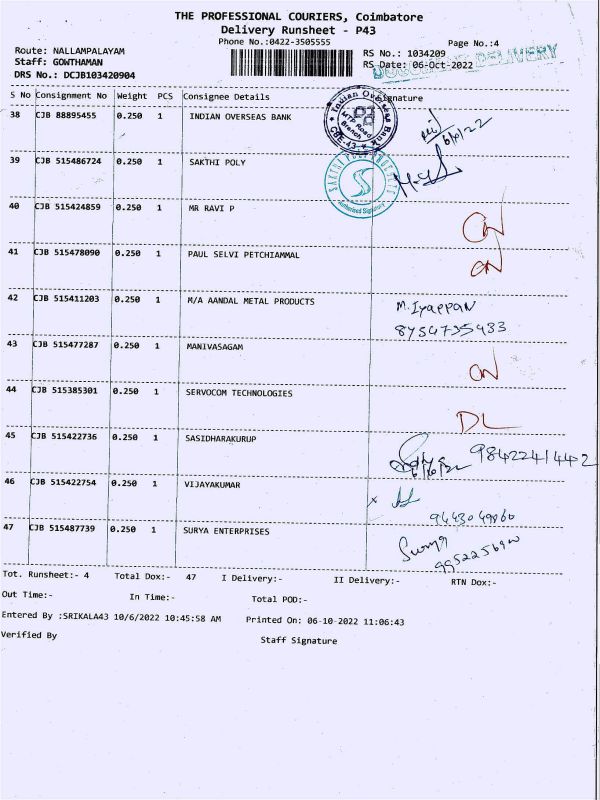 THE PROFESSIONAL COURIERS, Coimbatore
Delivery Runsheet - P43
Phone No.:0422-3505555
Page No.:4
Route: NALLAMPALAYAM
RS No.: 1034209
Staff: GOWTHAMAN
RS Date: 06-Oct-2022
DELIVERY
DRS No.: DCJB103420904
S No Consignment No Weight PCS Consignee Details Signature
38 CJB 88895455 0.250 1 INDIAN OVERSEAS BANK
Indian Overseas Bank
MTP Road
Branch
CBE-43
6/10/22
39 CJB 515486724 0.250 1 SAKTHI POLY
Authorised Signatory
40 CJB 515424859 0.250 1 MR RAVI P
41 CJB 515478090 0.250 1 PAUL SELVI PETCHIAMMAL
42 CJB 515411203 0.250 1 M/A AANDAL METAL PRODUCTS M. Iyappan
8754735433
43 CJB 515477287 0.250 1 MANIVASAGAM
44 CJB 515385301 0.250 1 SERVOCOM TECHNOLOGIES DL
45 CJB 515422736 0.250 1 SASIDHARAKURUP 9842241442
46 CJB 515422754 0.250 1 VIJAYAKUMAR
47 CJB 515487739 0.250 1 SURYA ENTERPRISES
Tot. Runsheet:- 4 Total Dox:- 47 I Delivery:- II Delivery:- RTN Dox:-
Out Time:- In Time:- Total POD:-
Entered By :SRIKALA43 10/6/2022 10:45:58 AM Printed On: 06-10-2022 11:06:43
Verified By Staff Signature